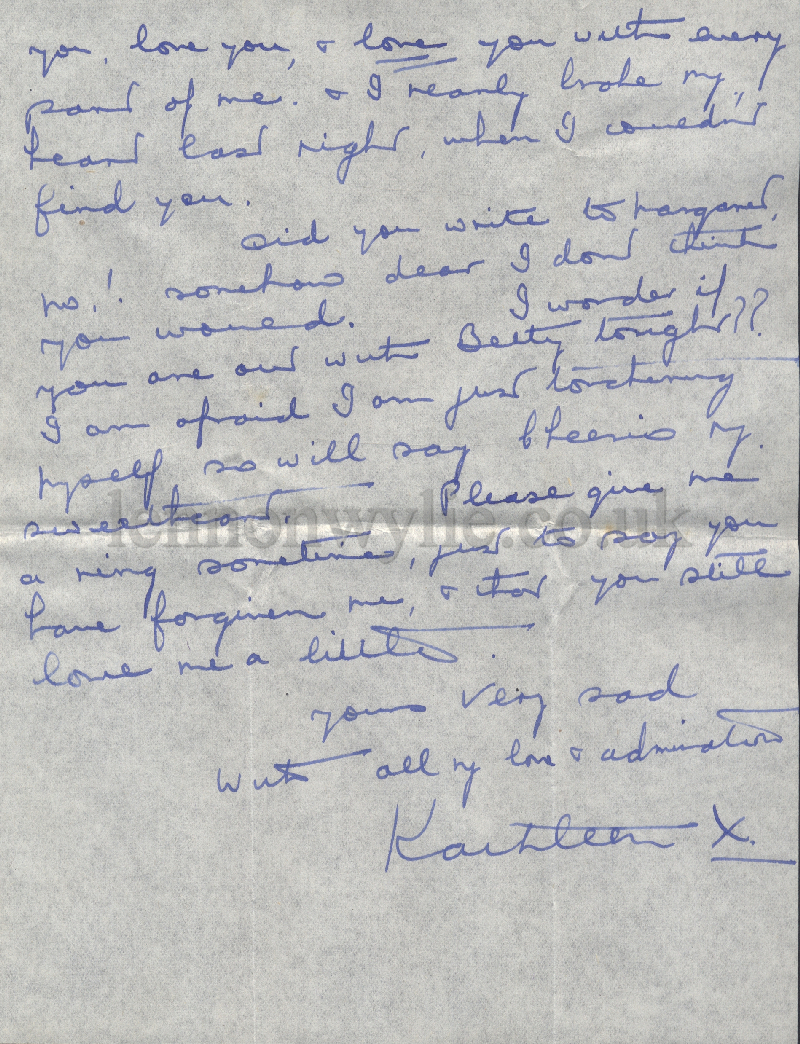 you, love you, & love you with every
part of me. & I nearly broke my
heart last night, when I couldn't
find you.
Did you write to Margaret,
no,! somehow dear I don't think
you would. I wonder if
you are out with Betty tonight??
I am afraid I am just torchering
myself so will say Cheerio my
sweetheart. Please give me
lennonwylie.co.uk
a ring sometime, just to say you
have forgiven me, & that you still
love me a little.
yours very sad
with all my love & admiration
Kathleen X.